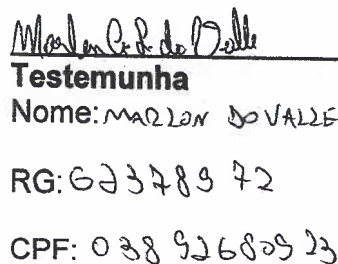 Marlon C. R. do Valle
Testemunha
Nome: MARLON DO VALLE
RG: 62378972
CPF: 03892680923